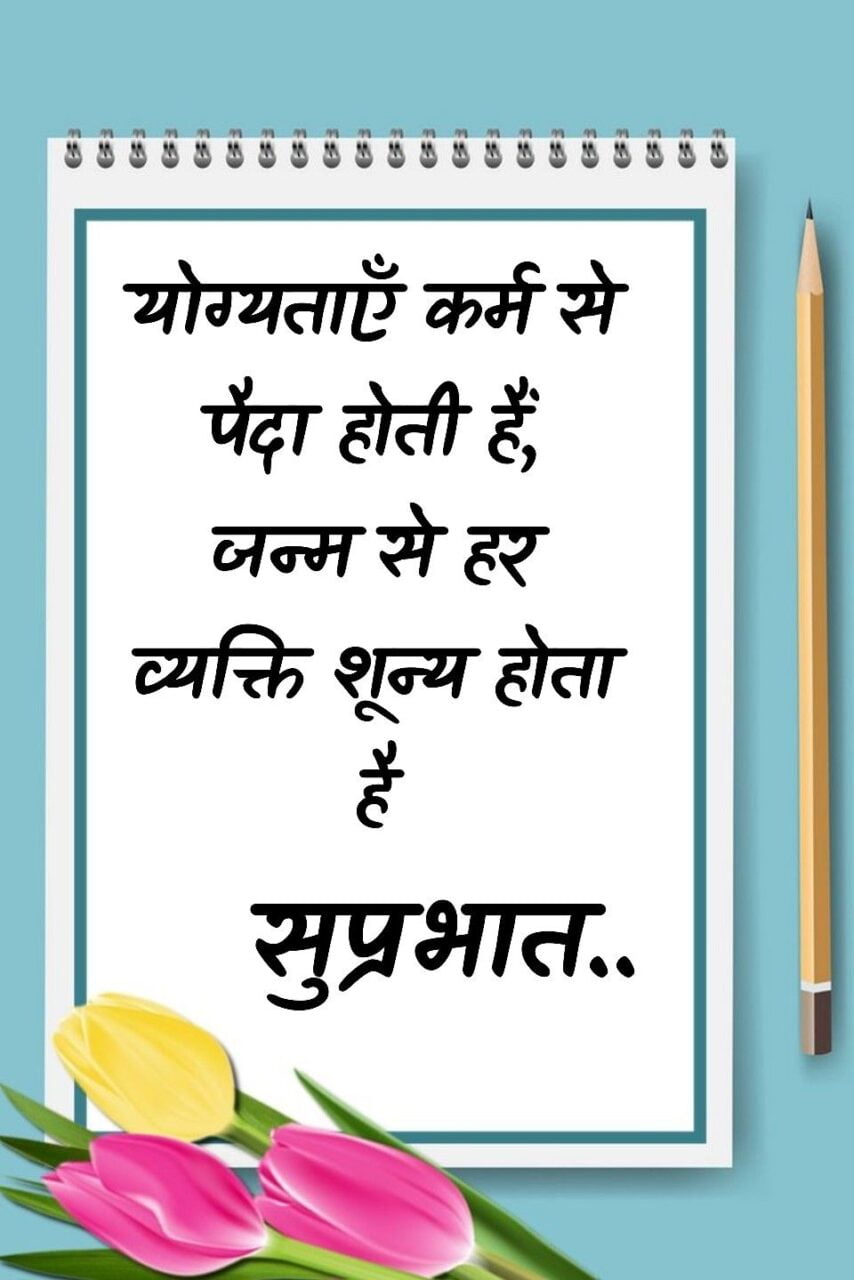 योग्यताएँ कर्म से
पैदा होती हैं,
जन्म से हर
व्यक्ति शून्य होता
है
सुप्रभात..